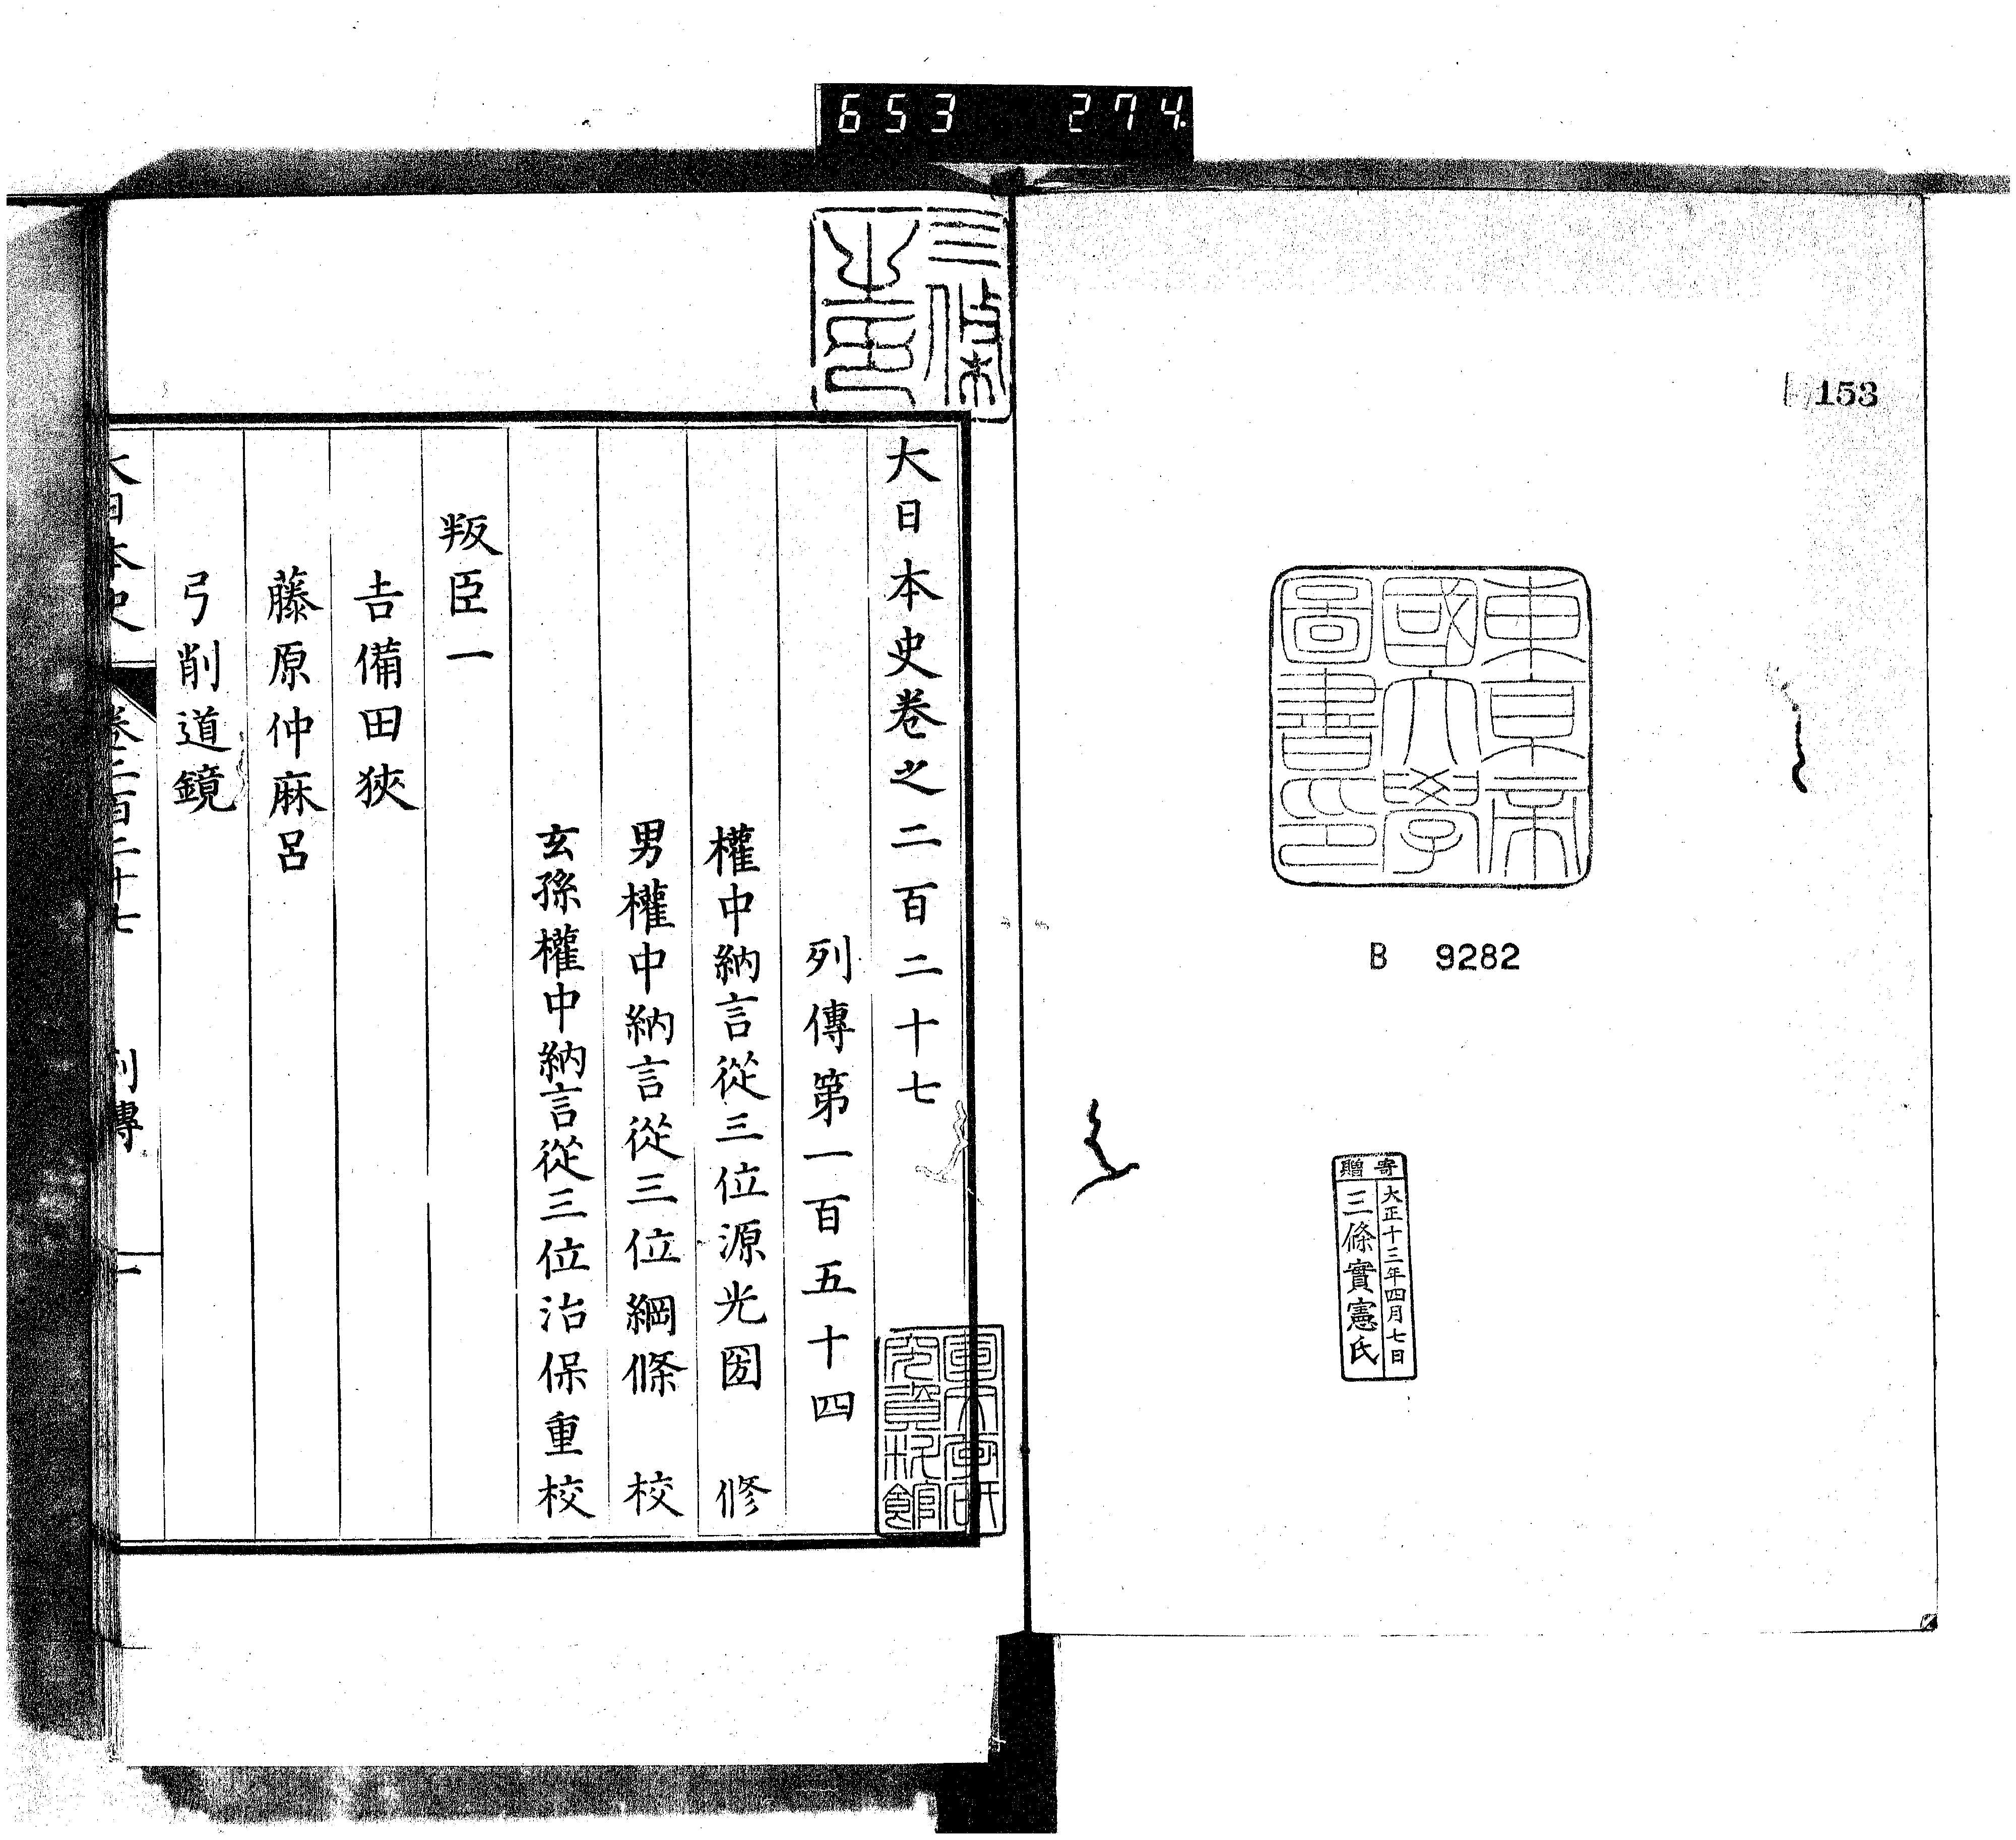 653 274
153
東京帝
國大學
圖書印
B 9282
寄贈
大正十三年四月七日
三條實憲氏
三條
之印
大日本史卷之二百二十七
列傳第一百五十四
權中納言從三位源光圀 修
男權中納言從三位綱條 校
玄孫權中納言從三位治保重校
叛臣一
吉備田狹
藤原仲麻呂
弓削道鏡
大日本史 卷二百二十七 列傳 一